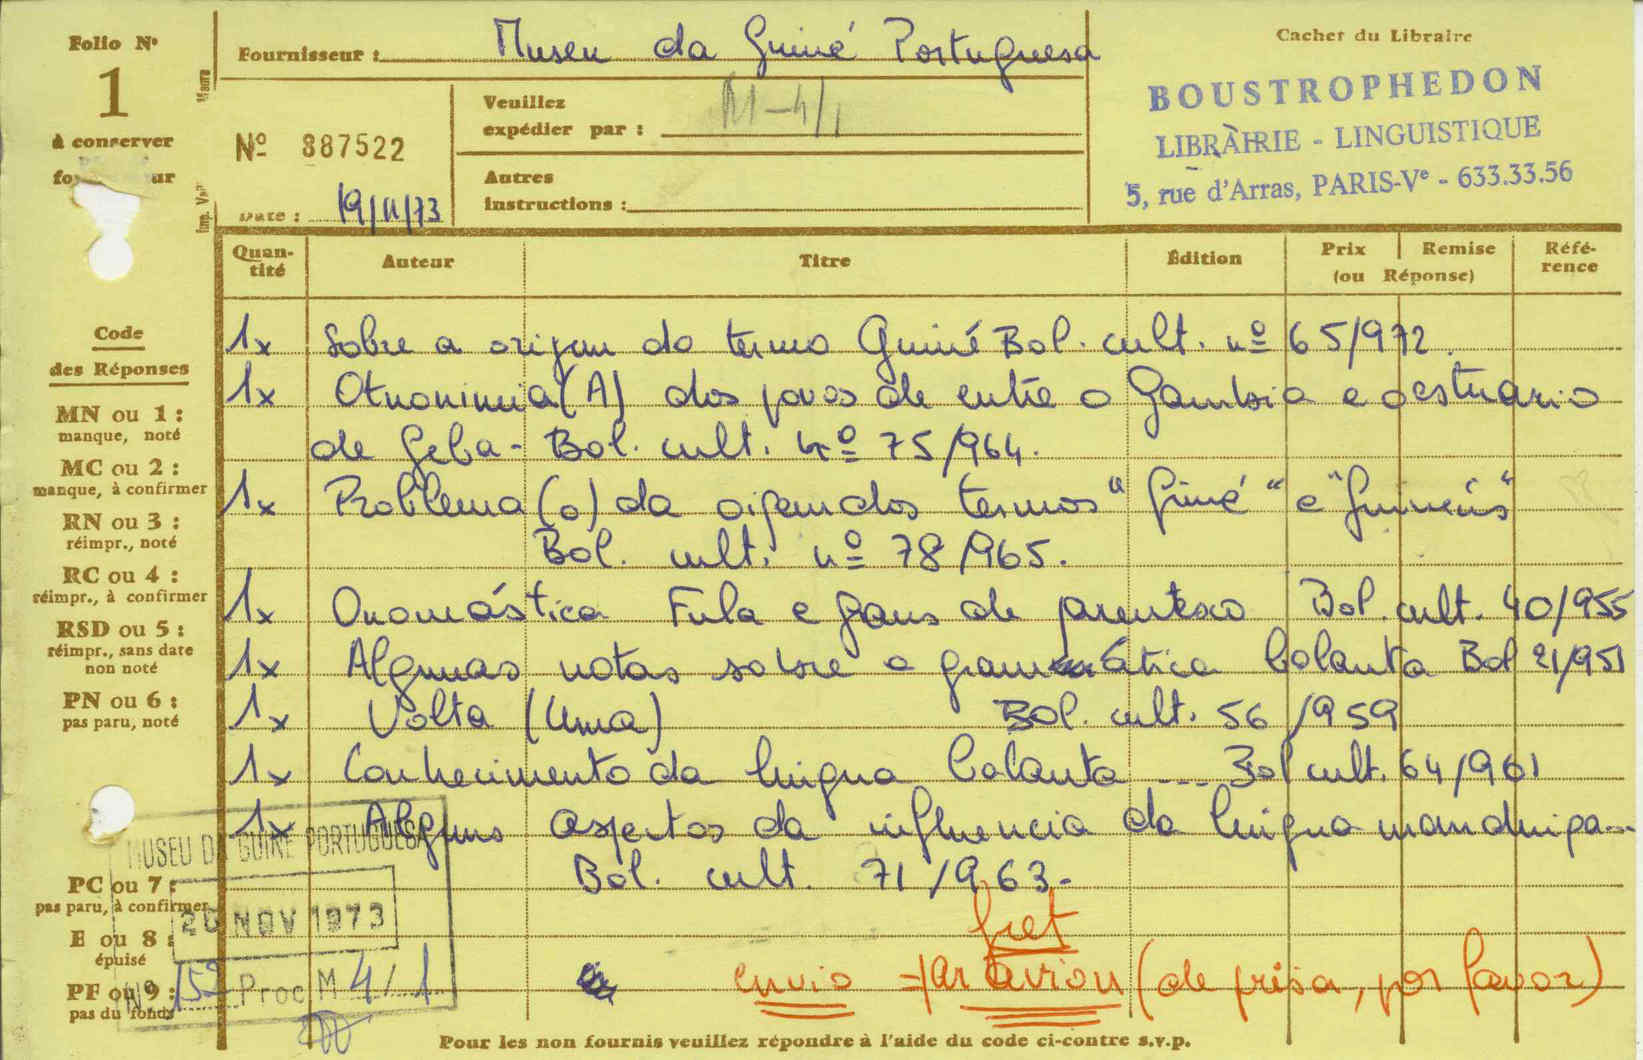 Folio Nº
1
à conserver
Fournisseur : Museu da Guiné Portuguesa
Cachet du Libraire
BOUSTROPHEDON
LIBRAIRIE - LINGUISTIQUE
5, rue d'Arras, PARIS-Vᵉ - 633.33.56
Veuillez
expédier par :
M-4/1
Nº 387522
Autres
instructions :
Date : 19/11/73
Quan-
tité
Auteur
Titre
Édition
Prix
Remise
(ou Réponse)
Réfé-
rence
1x Sobre a origem do termo Guiné Bol. cult. nº 65/972.
1x Otnonimia (A) dos povos de entre o Gambia e o estuario
de Geba - Bol. cult. nº 75/964.
1x Problema (o) da origem dos termos "Guiné" e "Guinéus"
Bol. cult. nº 78/965.
1x Onomástica Fula e graus de parentesco Bol. cult. 40/955
1x Algumas notas sobre a gramática balanta Bol 21/951
1x Volta (Uma) Bol. cult. 56/959
1x Conhecimento da lingua balanta --- Bol cult. 64/961
1x Alguns aspectos da influencia da lingua mandinga...
Bol. cult. 71/963.-
fret
envio par avion (de présa, por favor)
Code
des Réponses
MN ou 1 :
manque, noté
MC ou 2 :
manque, à confirmer
RN ou 3 :
réimpr., noté
RC ou 4 :
réimpr., à confirmer
RSD ou 5 :
réimpr., sans date
non noté
PN ou 6 :
pas paru, noté
PC ou 7 :
pas paru, à confirmer
E ou 8 :
épuisé
PF ou 9 :
pas du fonds
MUSEU DA GUINÉ PORTUGUESA
20 NOV 1973
Nº 159 Proc M 4/1
Pour les non fournis veuillez répondre à l'aide du code ci-contre s.v.p.